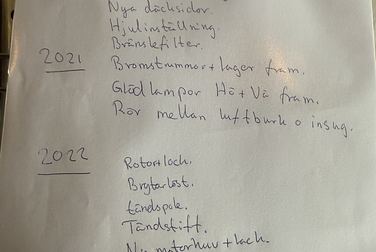 Nya däcksidor.
Hjulinställning.
Bränslefilter.
2021 Bromstrummor + lager fram.
Glödlampor Hö + Vä fram.
Rör mellan luftburk o insug.
2022 Rotor + lock.
Brytarlöst.
tändspole.
Tändstift.
Ny motorhuv + lack.